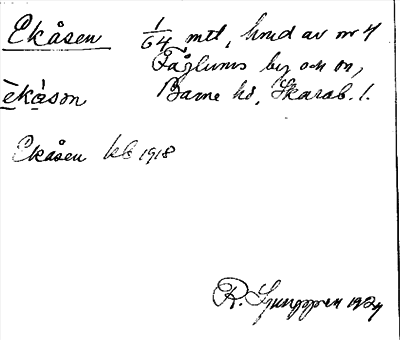 Ekåsen 1/64 mtl, hmd av nr 4
Fåglums by och sn,
èkåsòn Barne hd, Skarab. l.
Ekåsen kb 1918
R. Ljunggren 1924